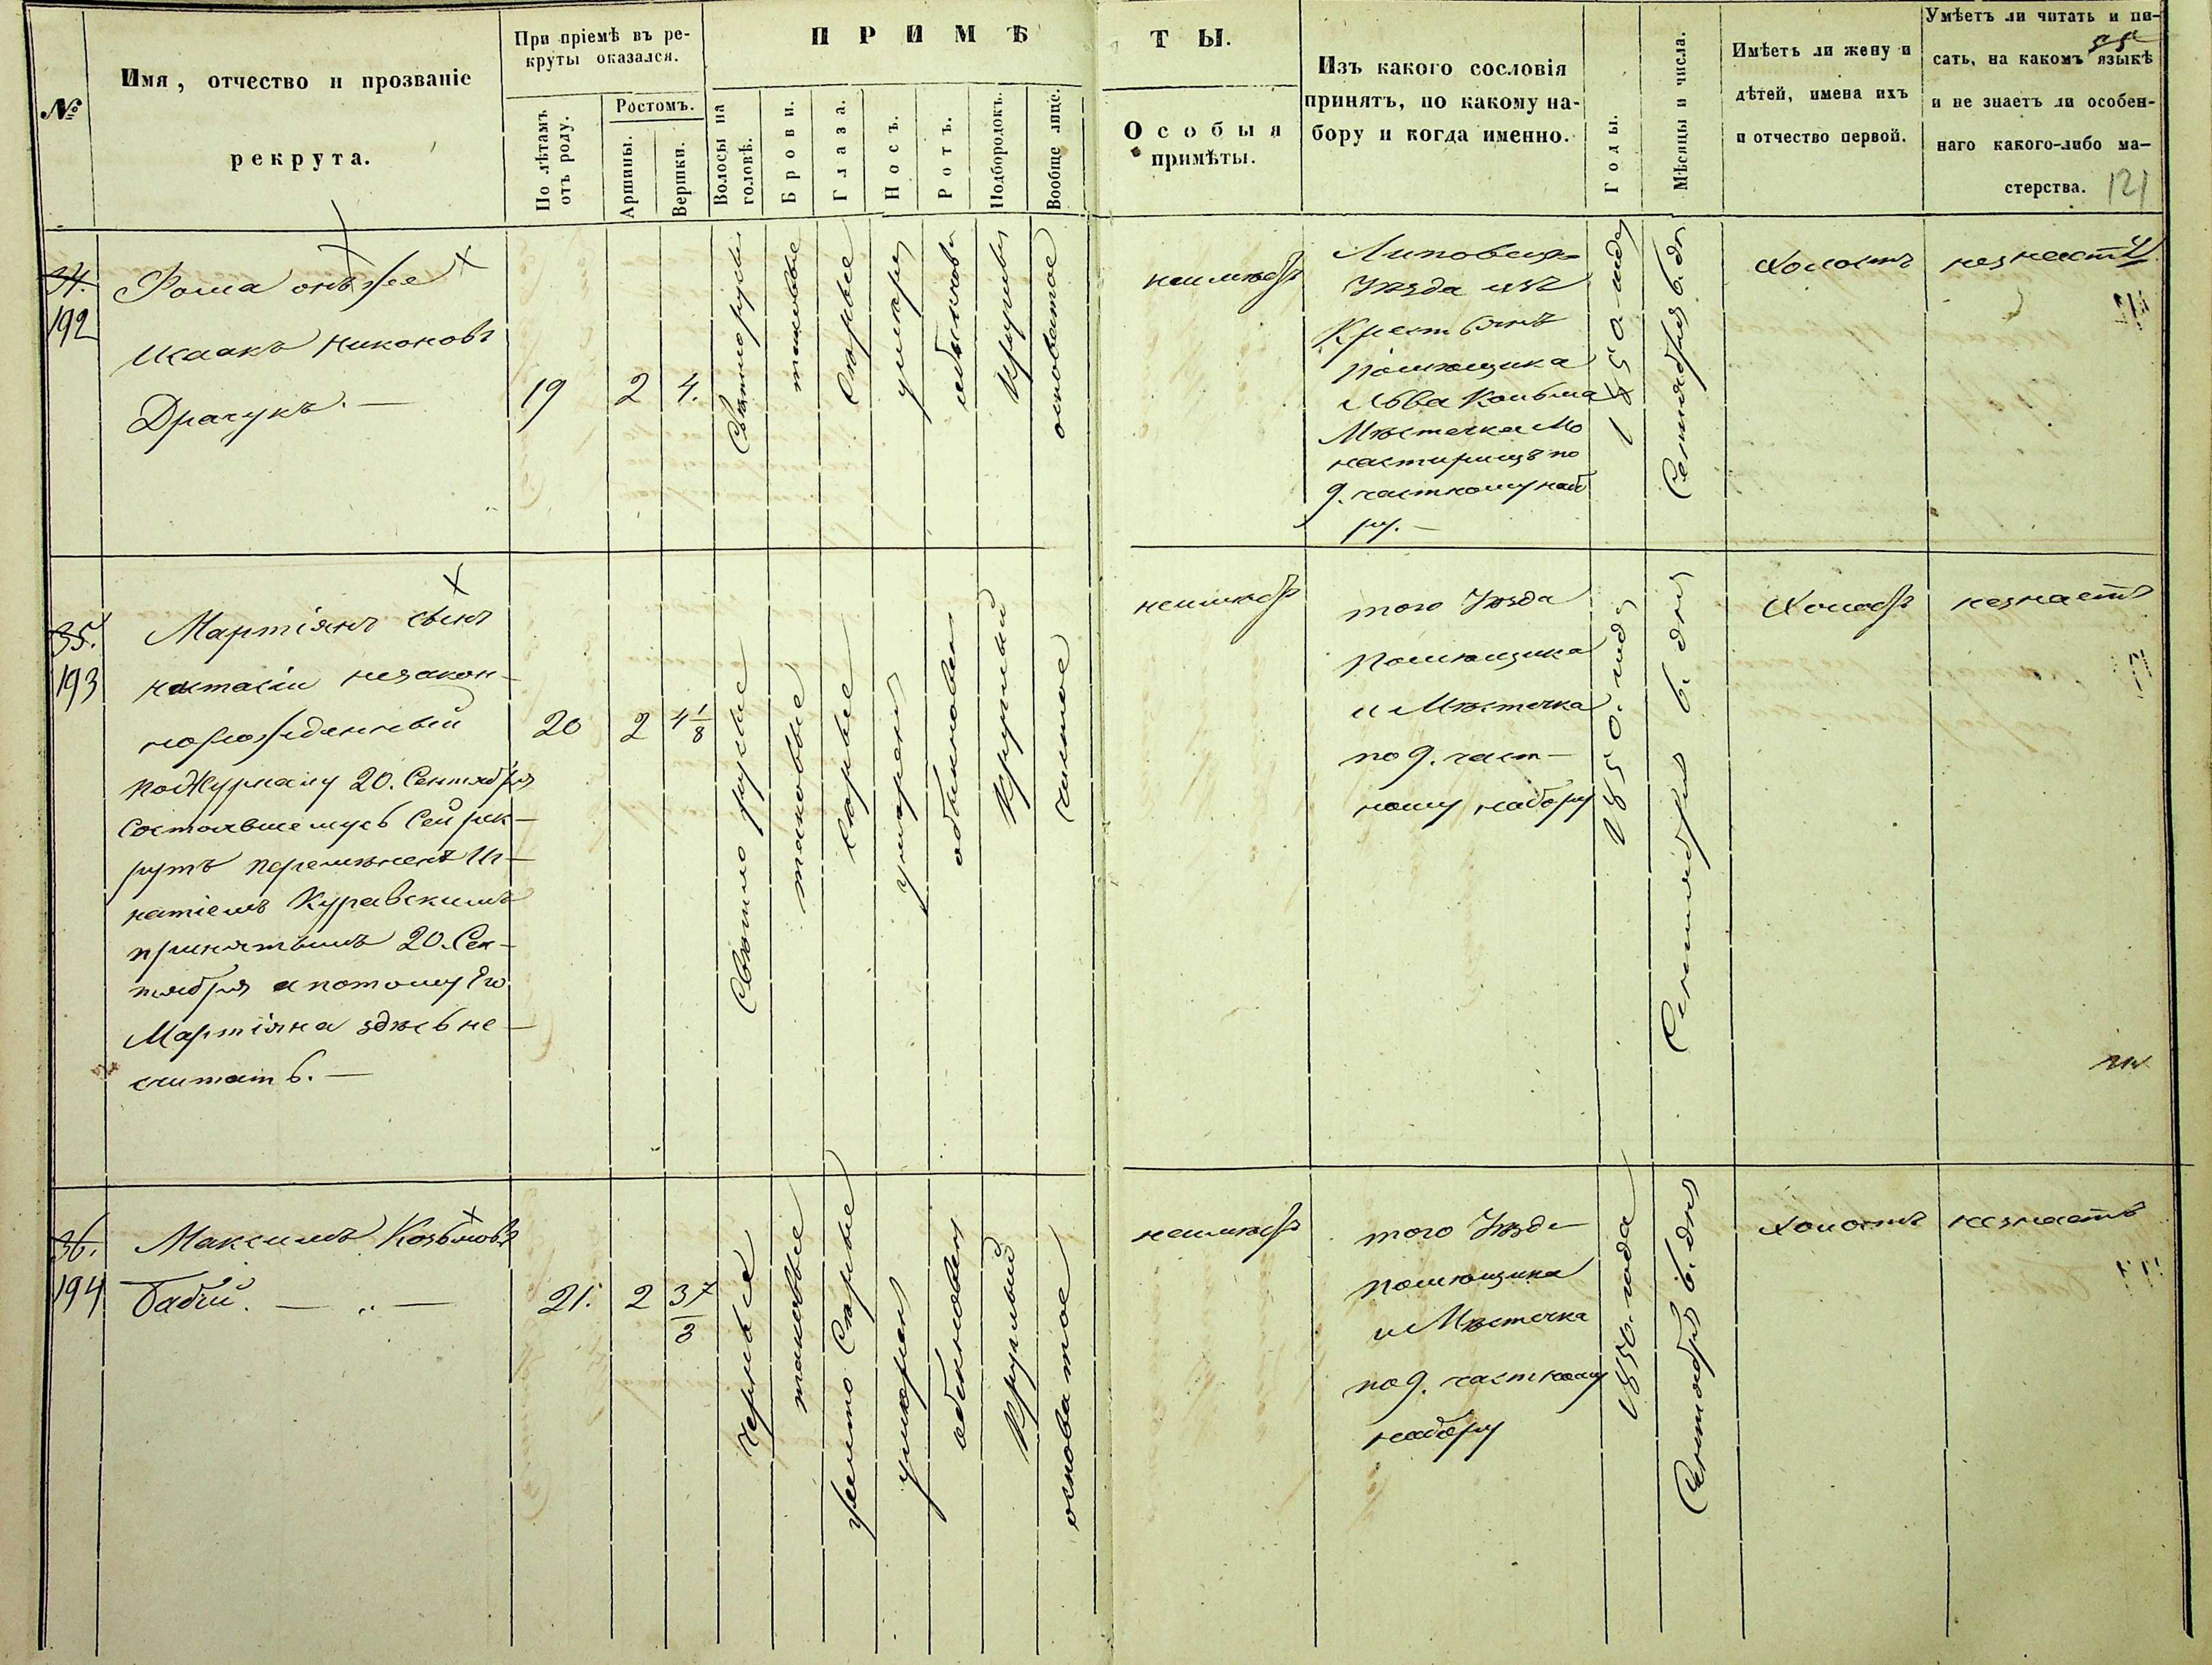 №
Имя, отчество и прозваніе
рекрута.
При пріемѣ въ ре-
круты оказался.
По лѣтамъ
отъ роду.
Ростомъ.
Аршины.
Вершки.
ПРИМѢ
ТЫ.
Волосы на
головѣ.
Брови.
Глаза.
Носъ.
Ротъ.
Подбородокъ.
Вообще лице.
Особыя
примѣты.
Изъ какого сословія
принятъ, по какому на-
бору и когда именно.
Годы.
Мѣсяцы и числа.
Имѣетъ ли жену и
дѣтей, имена ихъ
и отчество первой.
Умѣетъ ли читать и пи-
сать, на какомъ языкѣ
и не знаетъ ли особен-
наго какого-либо ма-
стерства.
121
34.
192
Фома онъ же
Исаакъ Никоновъ
Драчукъ. —
19
2
4.
Свѣтлорусые
таковые
Сѣрые
умѣрен
обыкнове
Круглый
основатое
неимѣетъ
Липовец
Уѣзда изъ
Крестьянъ
помѣщика
Льва
Мѣстечка Мо
настирищъ по
9. частному наб
ру. —
1850. года
Сентября 6. дн
Холостъ
незнаетъ
35.
193
Мартіянъ сынъ
Настасіи незакон-
норожденный
по Журналу 20. Сентября
Состоявшемусь Сей рек-
рутъ перемѣненъ Иг-
натіемъ Куравскимъ
принятымъ 20. Сен-
тября а потому Его
Мартіяна здѣсь не
считать. —
20
2
4 1/8
Свѣтло русые
таковые
сѣрые
умѣренъ
обыкновен
Круглый
чистое
неимѣетъ
того Уѣзда
помѣщика
и Мѣстечка
по 9. част-
ному набору
1850. года
Сентября 6. дня
Холостъ
незнаетъ
36.
194
Максимъ Козьмовъ
Бабій. —
21.
2
3 7/8
черные
таковые
желто Сѣрые
умѣрен
обыкновен
Круглый
основатое
неимѣетъ
того Уѣзда
помѣщика
и Мѣстечка
по 9. частному
набору
1850. года
Сентября 6. дня
Холостъ
незнаетъ